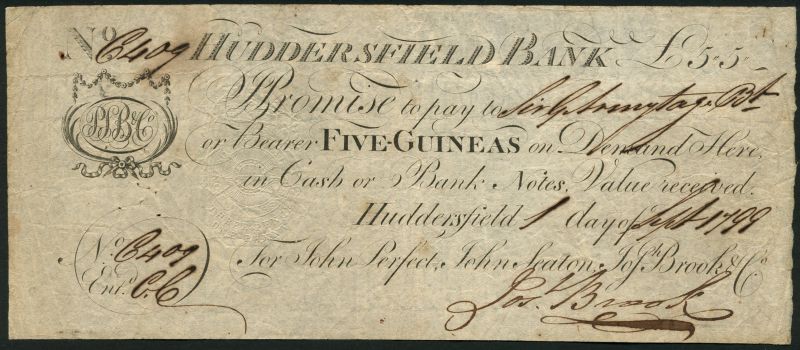 No C409 HUDDERSFIELD BANK £5"5"
PSB&Co
Promise to pay to Sir G Armytage Bt
or Bearer FIVE-GUINEAS on Demand Here,
in Cash or Bank Notes, Value received.
Huddersfield 1 day of Sept 1799
No C409
Entd C.C
For John Perfect, John Seaton, Josh Brook & Co
Jos. Brook